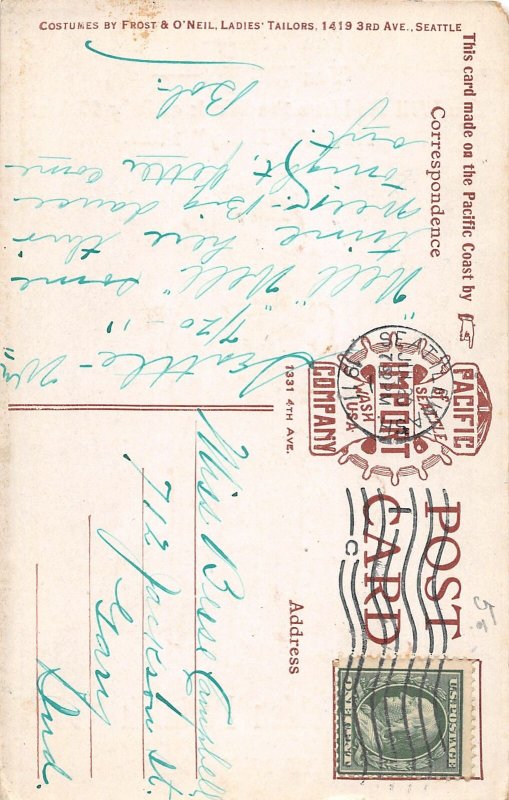 COSTUMES BY FROST & O'NEIL, LADIES' TAILORS, 1419 3RD AVE., SEATTLE
This card made on the Pacific Coast by
PACIFIC
IMPORT
COMPANY
SEATTLE
WASH
USA
1331 4TH AVE.
POST
CARD
Correspondence
Address
SEATTLE, WASH.
1911
C
U.S. POSTAGE
ONE CENT
Seattle - Wn
7/20 - 11
"Well" "Well" some
time here this
Big dance
tonight. Better come
out.
Bob.
Miss Besse Campbell
712 Jackson St.
Gary
Ind.